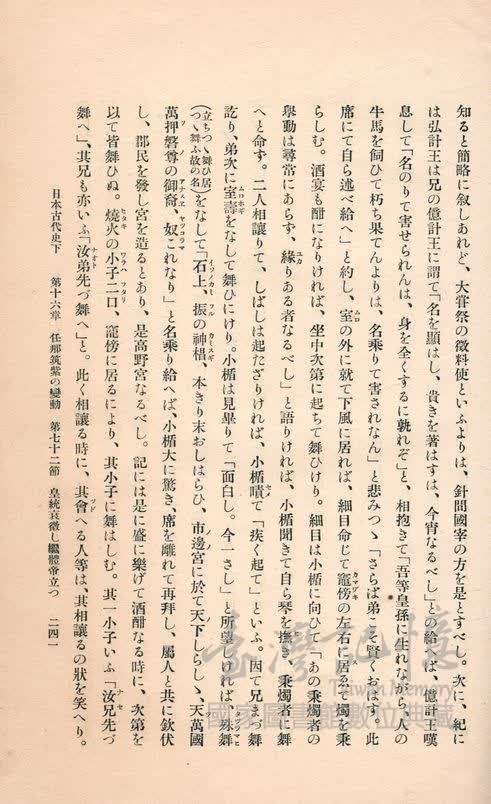 知ると簡略に叙しあれど、大甞祭の徴料使といふよりは、針間國宰の方を是とすべし。次に、紀に
は弘計王は兄の億計王に謂て「名を顯はし、貴きを著はすは、今宵なるべし」との給へば、億計王嘆
息して「名のりて害せられんは、身を全くするに孰れぞ」と、相抱きて「吾等皇孫に生れながら、人の
牛馬を飼ひて朽ち果てんよりは、名乘りて害されなん」と悲みつゝ「さらば弟こそ賢くおはす。此
席にて自ら述べ給へ」と約し、室の外に就て下風に居れば、細目命じて竈傍の左右に居ゑて燭を秉
らしむ。酒宴も酣になりければ、坐中次第に起ちて舞ひけり。細目は小楯に向ひて「あの秉燭者の
擧動は尋常にあらず、緣りある者なるべし」と語りければ、小楯聞きて自ら琴を撫き、秉燭者に舞
へと命ず。二人相讓りて、しばしは起たざりければ、小楯嘖て「疾く起て」といふ。因て兄まづ舞
訖り、弟次に室壽をなして舞ひにけり。小楯は見畢りて「面白し。今一さし」と所望しければ、殊舞
(立ちつゝ舞ひ居つゝ舞ふ故の名)をなして「石上、振の神椙、本きり末おしはらひ、市邊宮に於て天下しらしゝ、天萬國
萬押磐尊の御裔、奴これなり」と名乘り給へば、小楯大に驚き、席を離れて再拜し、屬人と共に欽伏
し、郡民を發し宮を造るとあり、是高野宮なるべし。記には是に盛に樂げて酒酣なる時に、次第を
以て皆舞ひぬ。燒火の小子二口、竈傍に居るにより、其小子に舞はしむ。其一小子いふ「汝兄先づ
舞へ」、其兄も亦いふ「汝弟先づ舞へ」と。此く相讓る時に、其會へる人等は、其相讓るの狀を笑へり。
日本古代史下 第十六章 任那筑紫の變動 第七十二節 皇統衰微し繼體帝立つ 二四一
臺灣記憶
Taiwan Memory
國家圖書館數位典藏